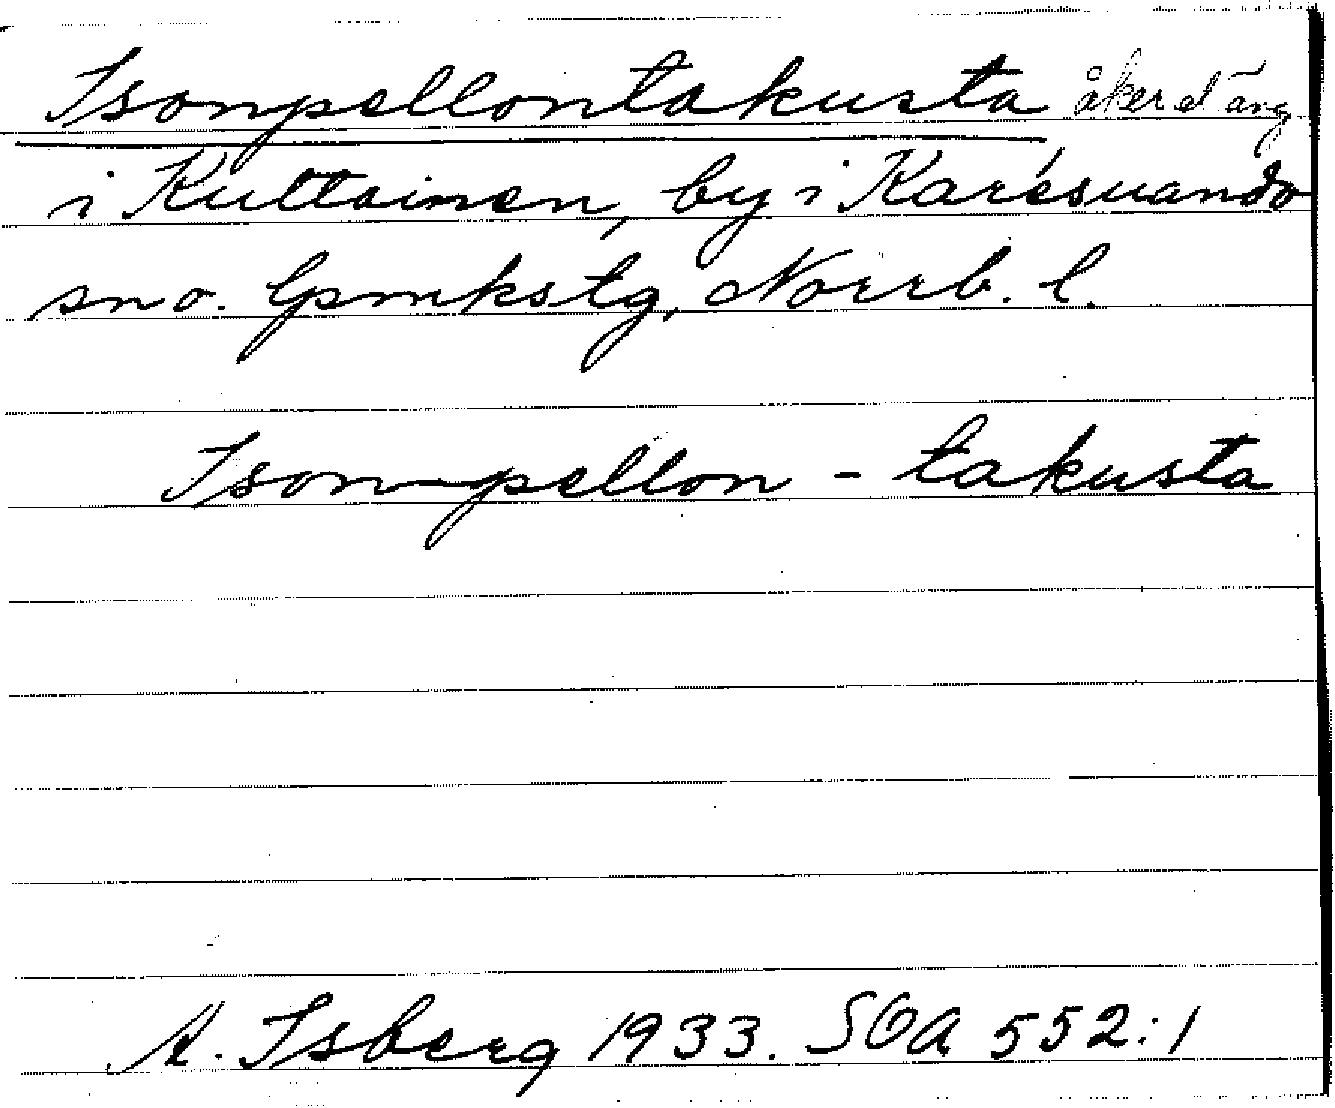 Isonpellontakusta åker el äng
i Kuttainen, by i Karesuando
sn o. lpmkstg, Norrb. l.
Isonpellon - takusta
A. Isberg 1933. SOA 552:1